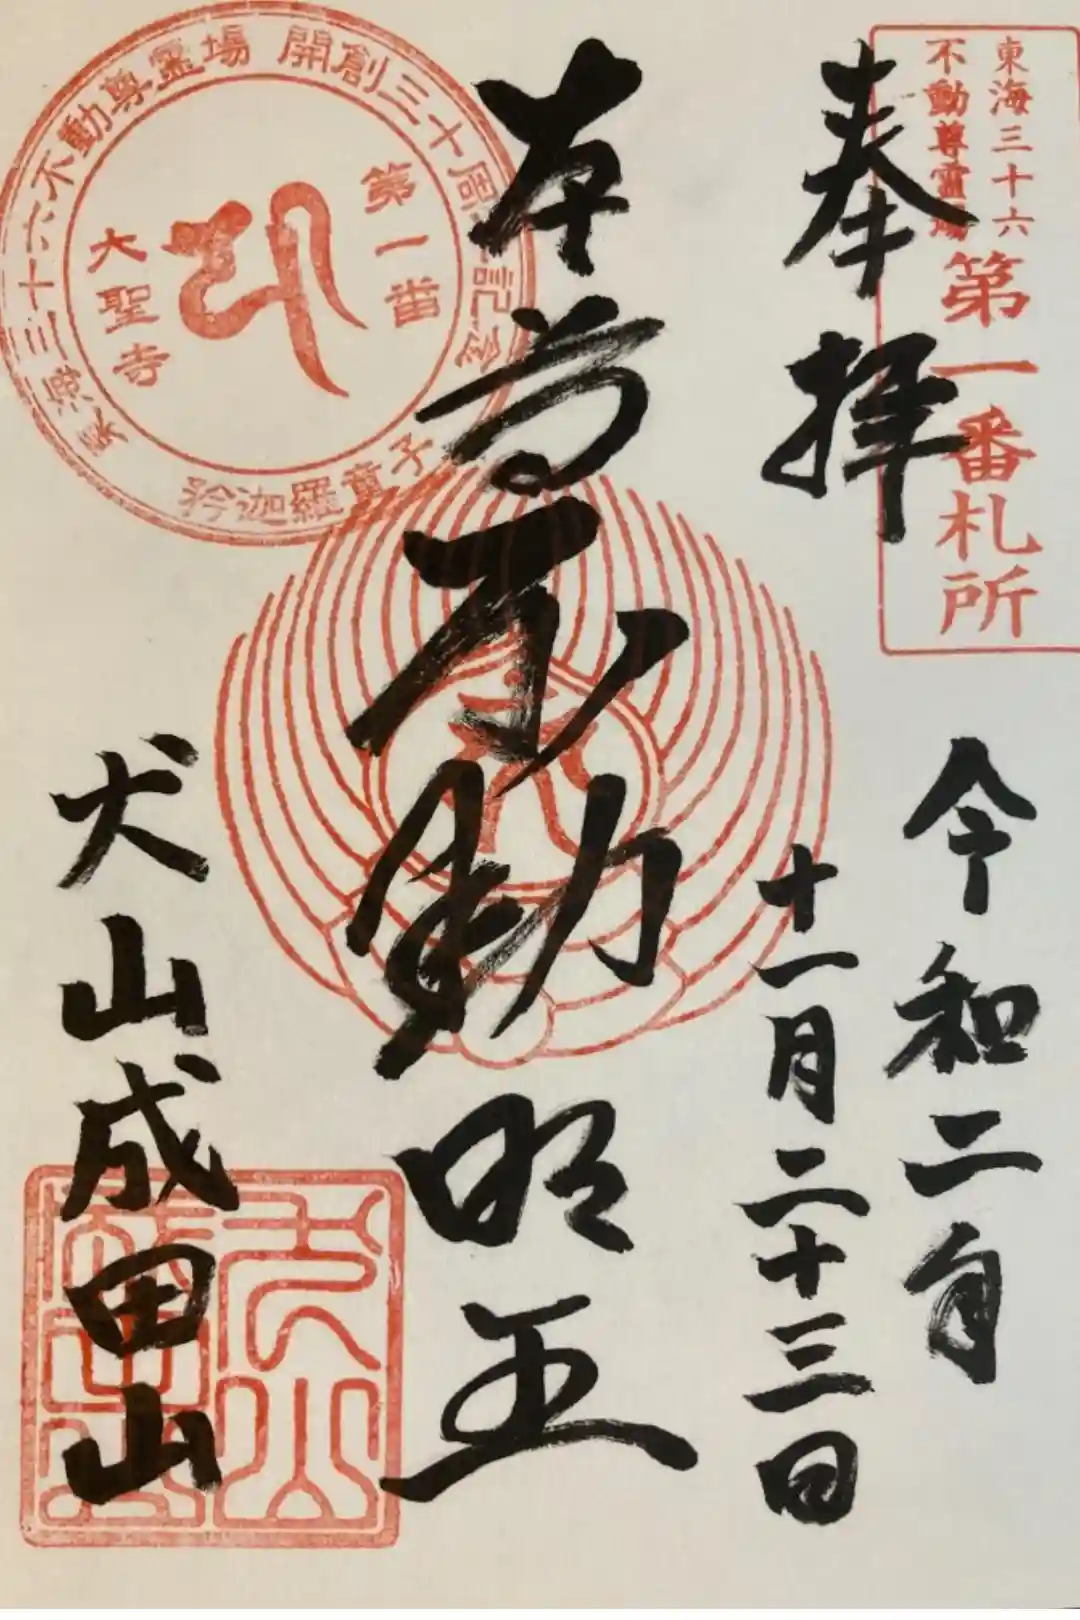 東海三十六
不動尊霊場
第一番札所
奉拝
令和二年
十一月二十三日
本尊不動明王
犬山成田山
東海三十六不動尊霊場 開創三十周年記念
矜迦羅童子
第一番
大聖寺